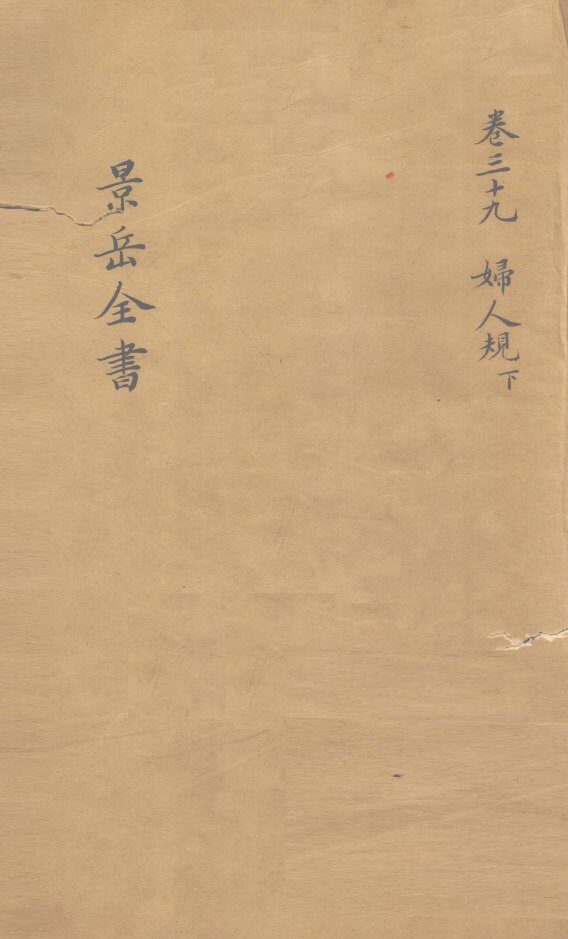 卷三十九 婦人規下
景岳全書